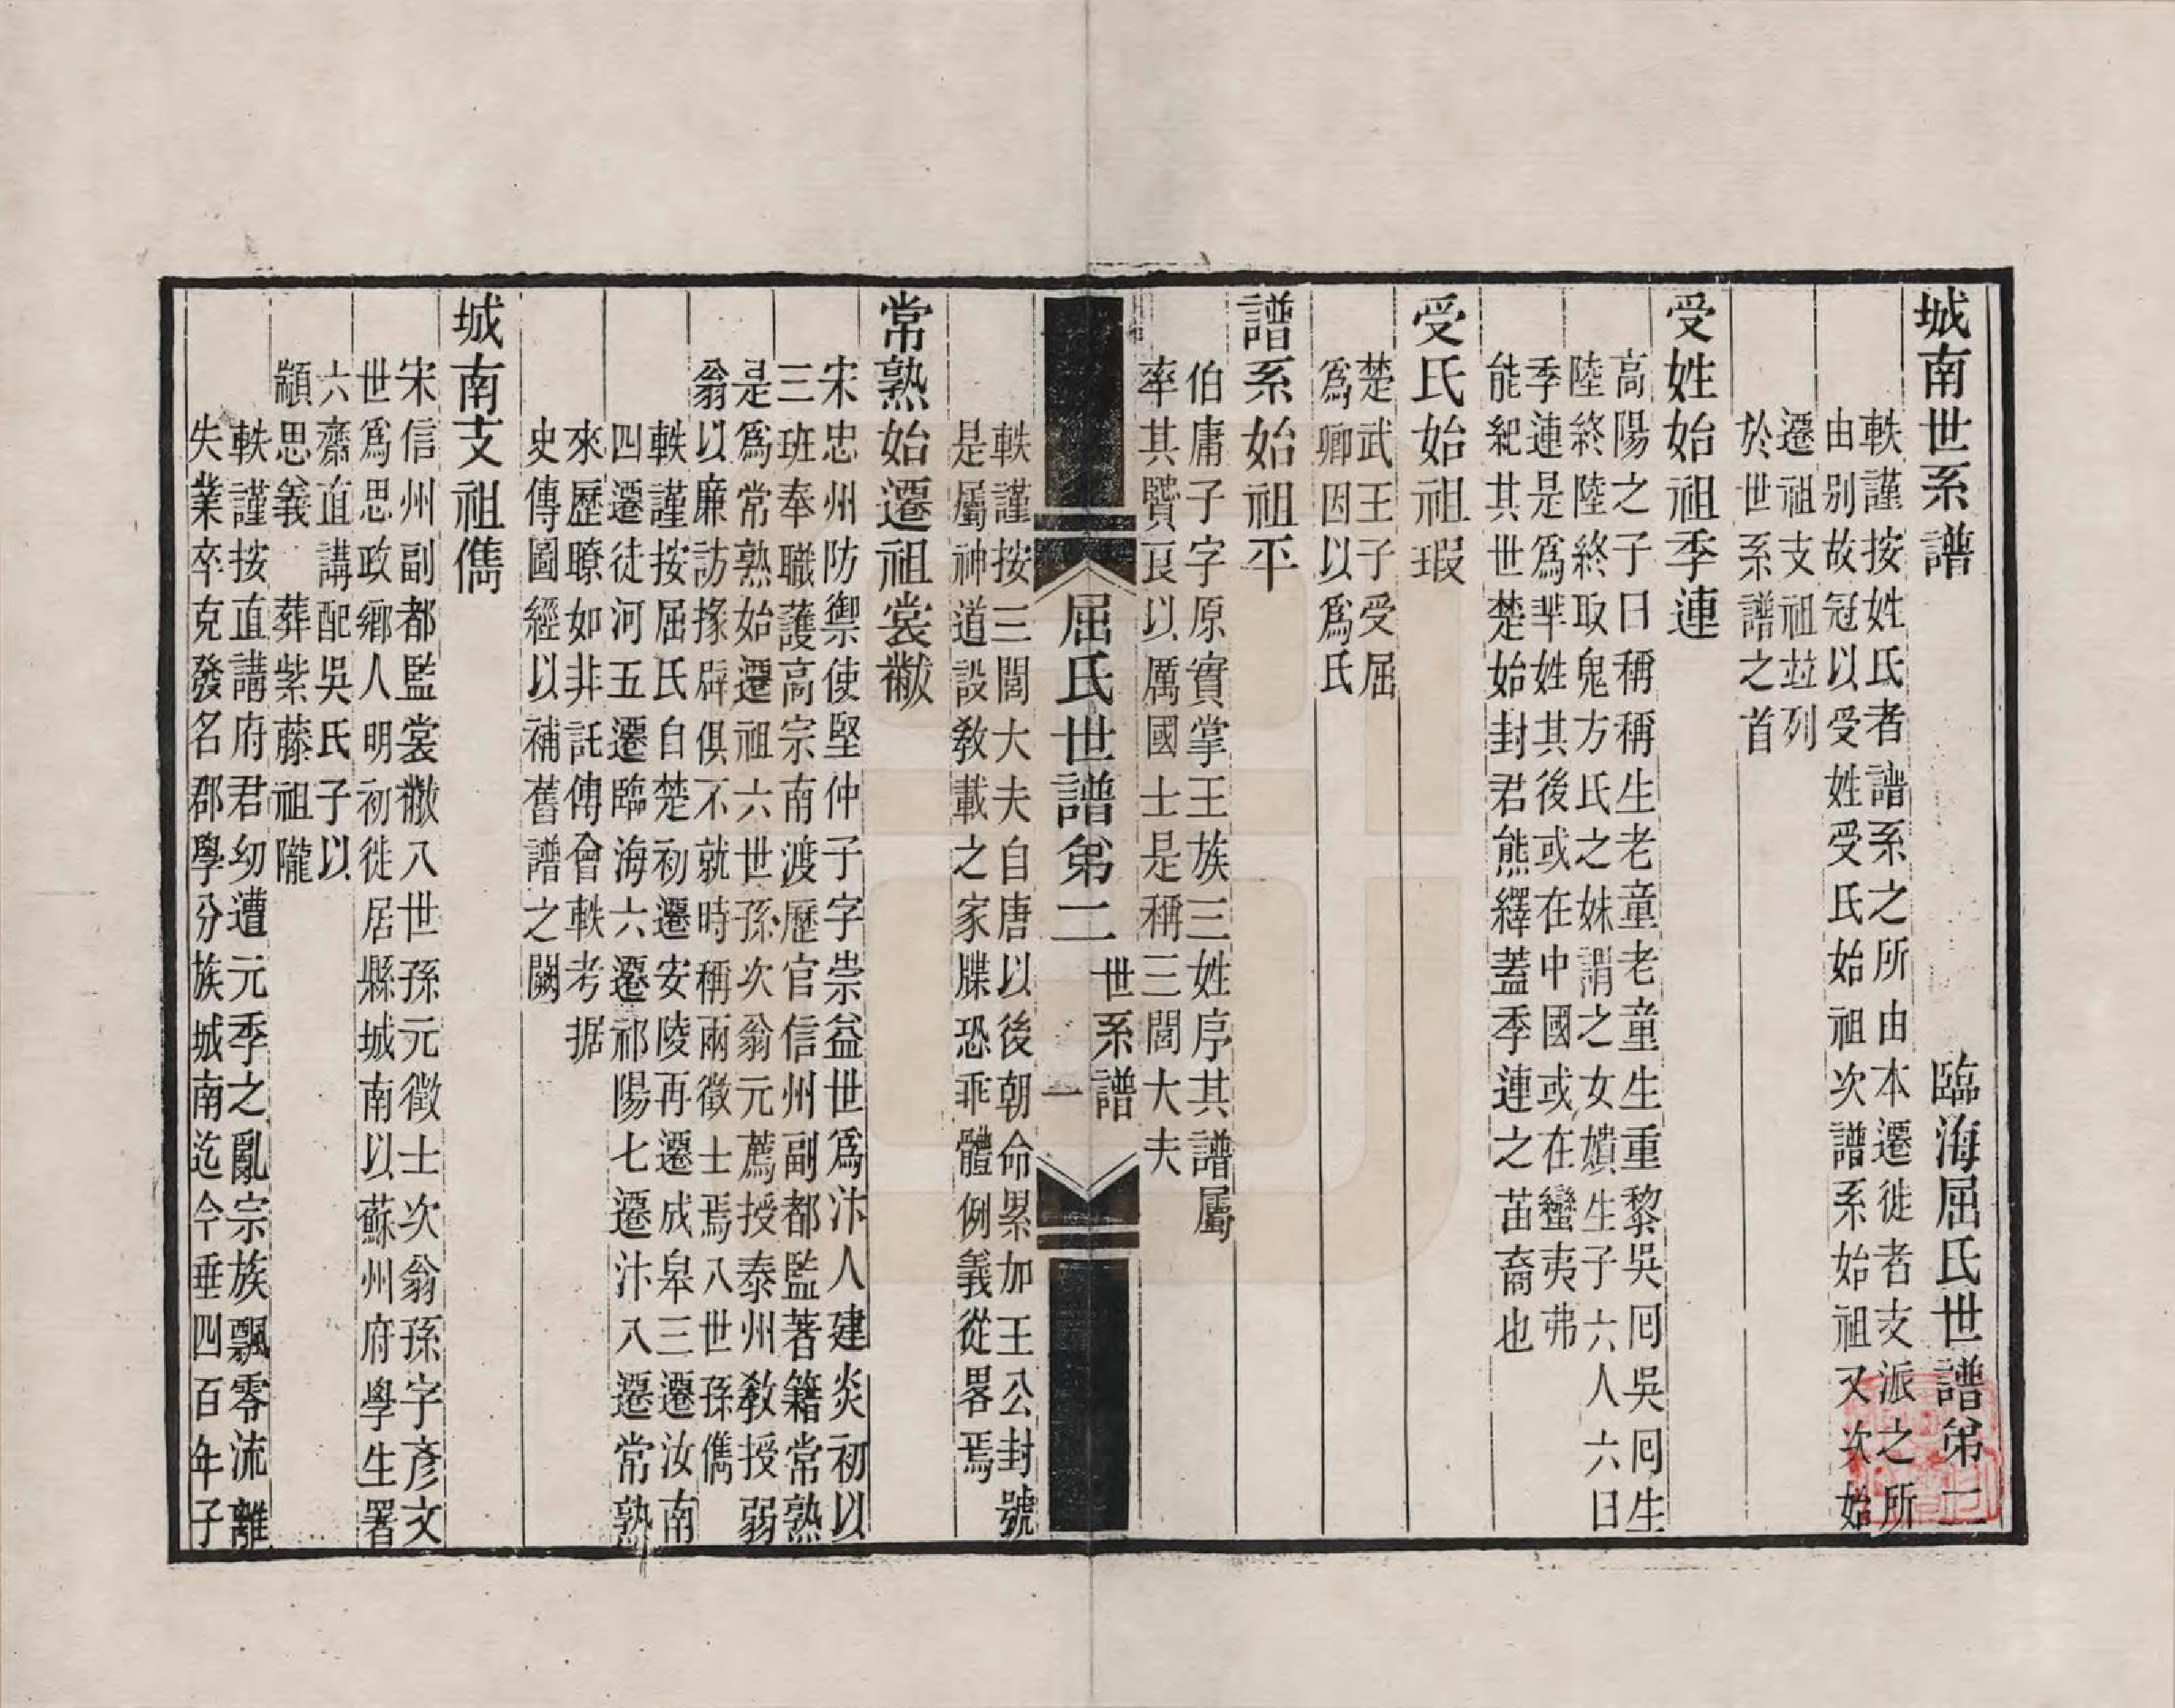 城南世系譜　臨海屈氏世譜弟二
軼謹按姓氏者譜系之所由本遷徙者支派之所
由別故冠以受姓受氏始祖次譜系始祖又次始
遷祖支祖竝列
於世系譜之首
受姓始祖季連
高陽之子曰稱稱生老童老童生重黎吳囘吳囘生
陸終陸終取鬼方氏之妹謂之女嬇生子六人六曰
季連是爲羋姓其後或在中國或在蠻夷弗
能紀其世楚始封君熊繹蓋季連之苗裔也
受氏始祖瑕
楚武王子受屈
爲卿因以爲氏
譜系始祖平
伯庸子字原實掌王族三姓序其譜屬
率其賢良以厲國士是稱三閭大夫
屈氏世譜弟二　世系譜　一
軼謹按三閭大夫自唐以後朝命累加王公封號
是屬神道設敎載之家牒恐乖體例義從畧焉
常熟始遷祖裳黻
宋忠州防禦使堅仲子字崇益世爲汴人建炎初以
三班奉職護高宗南渡歷官信州副都監著籍常熟
是爲常熟始遷祖六世孫次翁元薦授泰州敎授弱
翁以廉訪掾辟俱不就時稱兩徵士焉八世孫儁
軼謹按屈氏自楚初遷安陵再遷成皋三遷汝南
四遷徒河五遷臨海六遷祁陽七遷汴八遷常熟
來歷瞭如非託傅會軼考据
史傳圖經以補舊譜之闕
城南支祖儁
宋信州副都監裳黻八世孫元徵士次翁孫字彥文
世爲思政鄉人明初徙居縣城南以蘇州府學生署
六齋直講配吳氏子以
顓思義　葬紫藤祖隴
軼謹按直講府君幼遭元季之亂宗族飄零流離
失業卒克發名郡學分族城南迄今垂四百年子